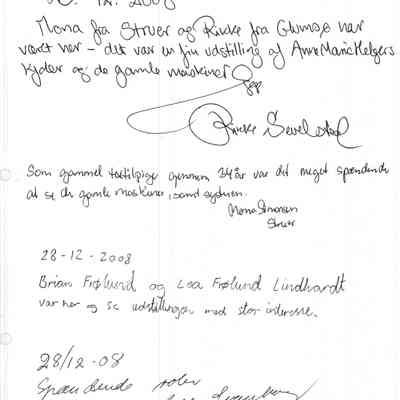 12. 2008
Mona fra Struer og Rikke fra Glumsø har
været her – det var en fin udstilling af Anne Marie Helgers
kjoler og de gamle maskiner
Rikke
Som gammel textilpige gennem 34 år var det meget spændende
at se de gamle maskiner, samt syduen.
Mona Simonsen
Struer
28-12-2008
Brian Frølund og Lea Frølund Lindhardt
var her og se udstillingen med stor interesse.
28/12-08
Spændende